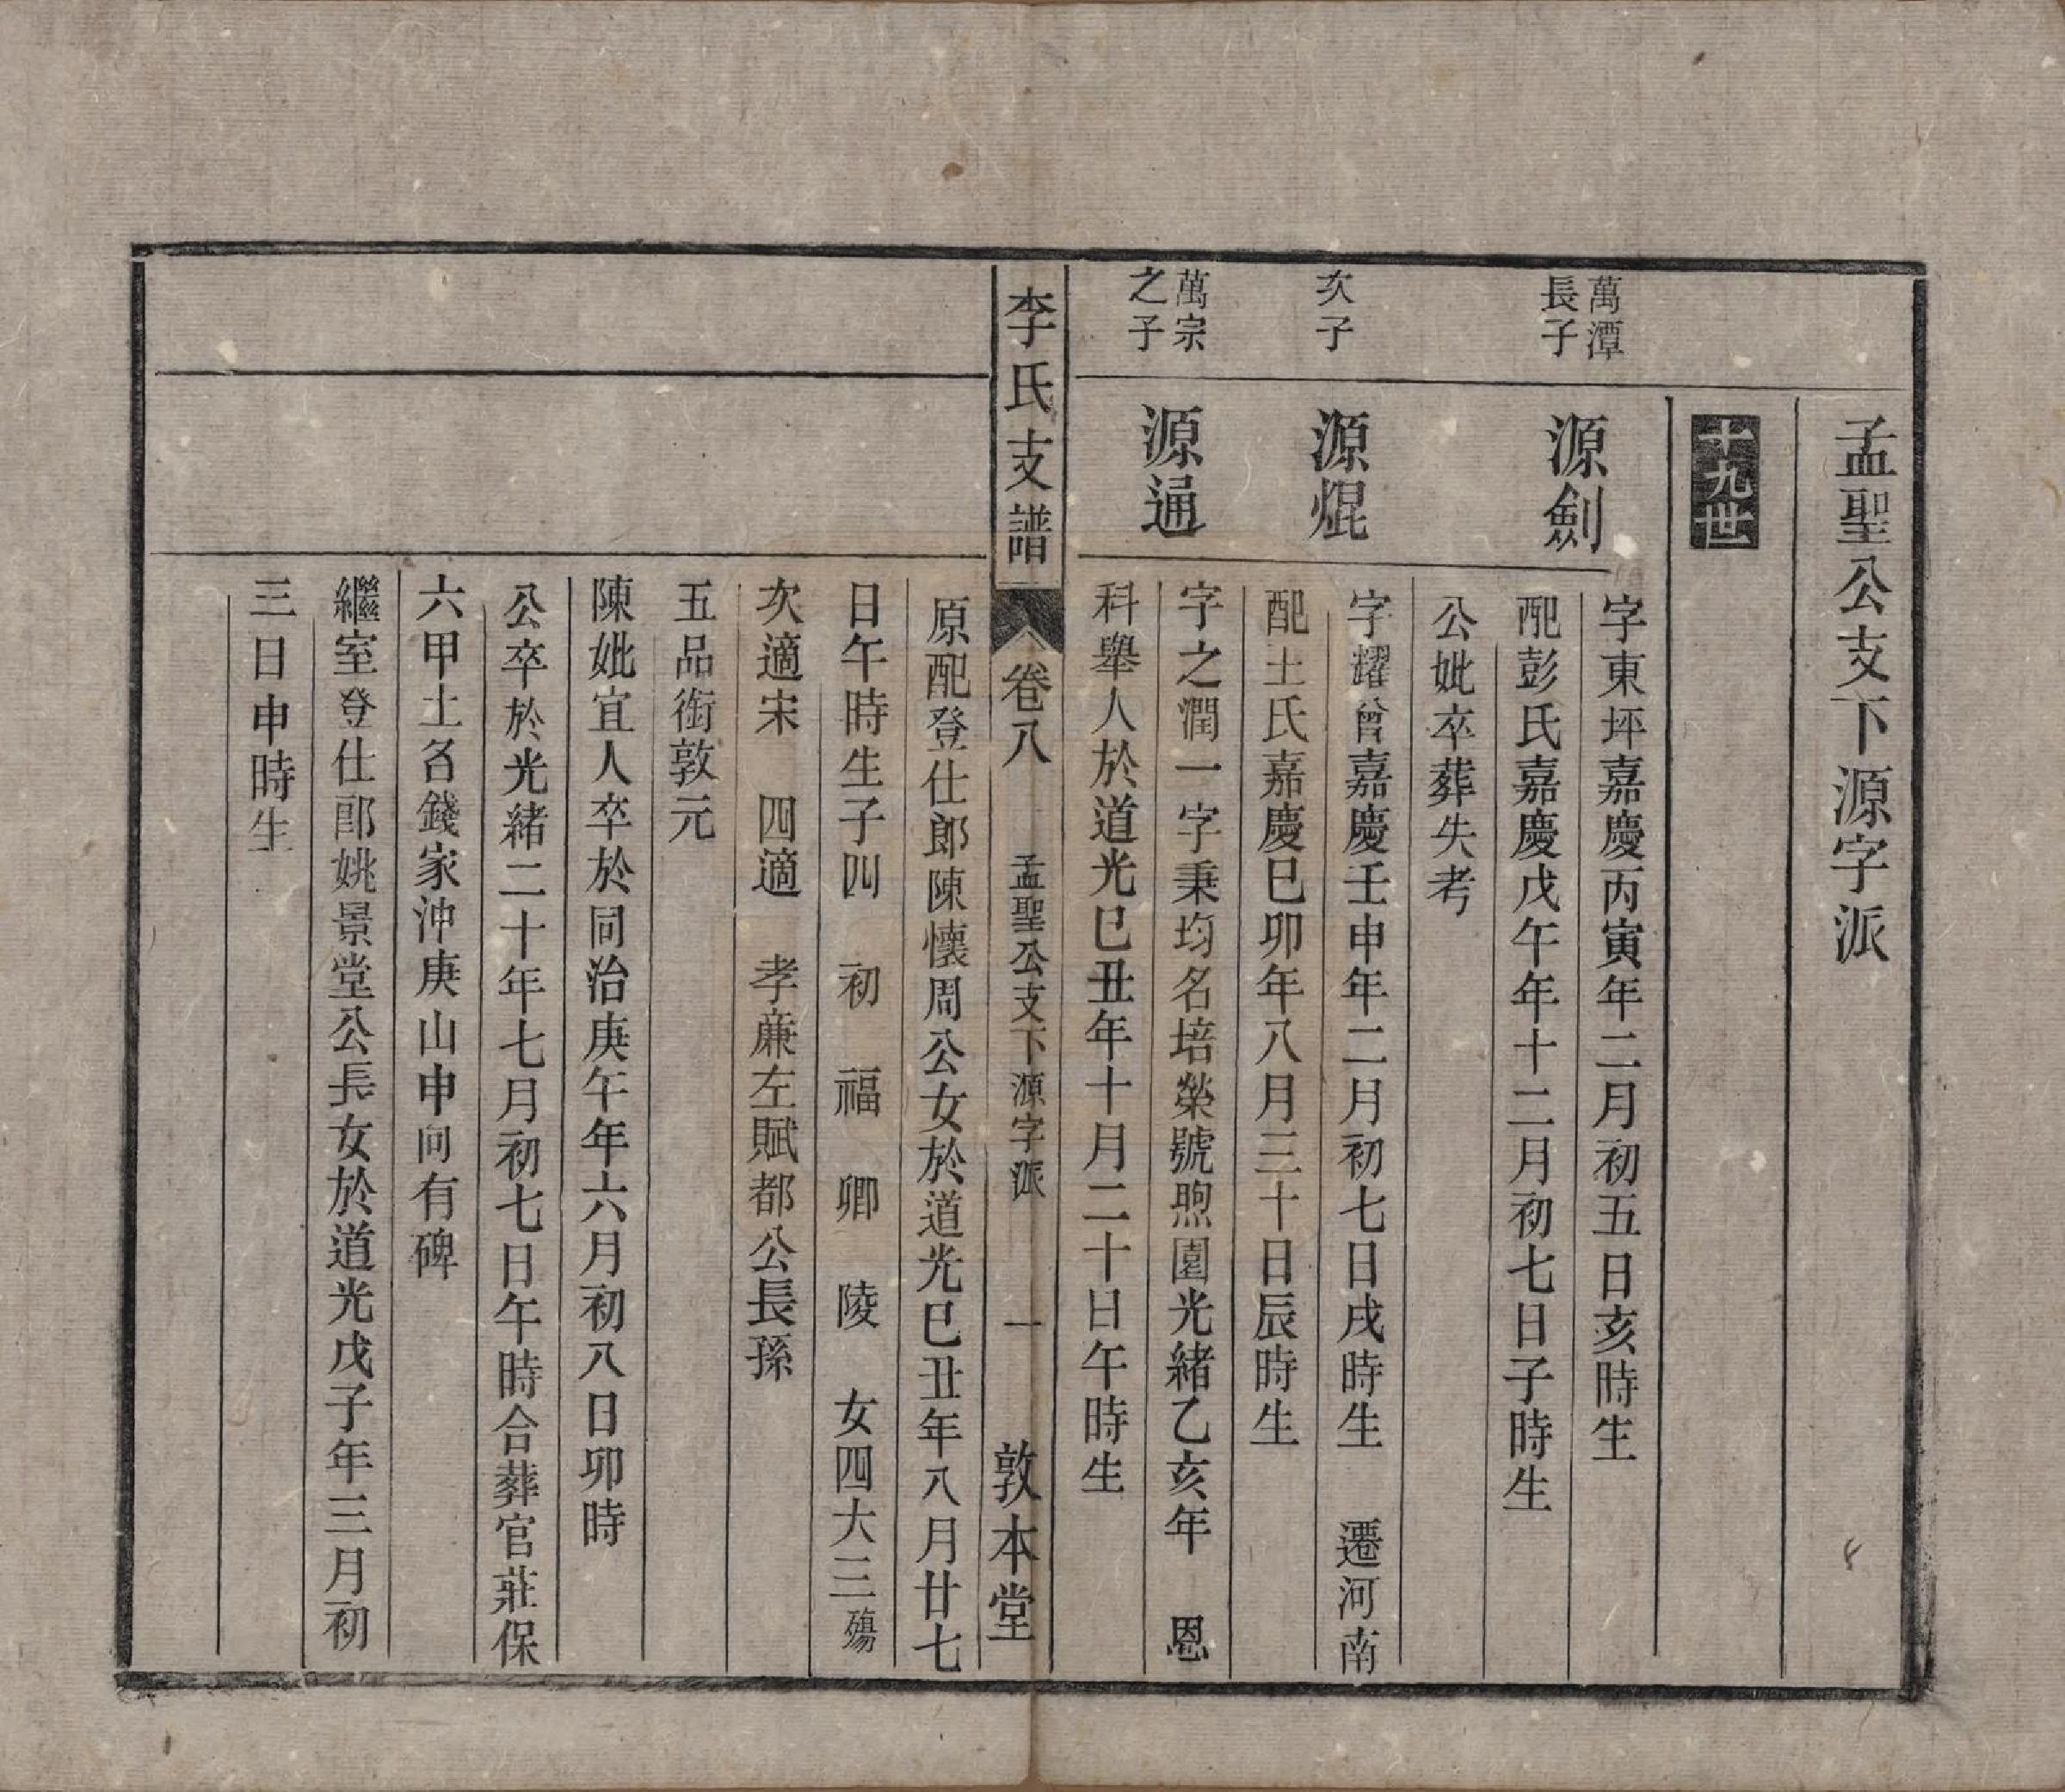 孟聖公支下源字派
十九世
萬潭
長子
源劍
字東坪嘉慶丙寅年二月初五日亥時生
配彭氏嘉慶戊午年十二月初七日子時生
公妣卒葬失考
次子
源焜
字耀曾嘉慶壬申年二月初七日戌時生 遷河南
配土氏嘉慶巳卯年八月三十日辰時生
萬宗
之子
源通
字之潤一字秉均名培榮號煦園光緒乙亥年 恩
科舉人於道光巳丑年十月二十日午時生
李氏支譜 卷八 孟聖公支下源字派 一 敦本堂
原配登仕郎陳懷周公女於道光巳丑年八月廿七
日午時生子四 初 福 卿 陵 女四大三殤
次適宋 四適 孝亷左賦都公長孫
五品銜敦元
陳妣宜人卒於同治庚午年六月初八日卯時
公卒於光緒二十年七月初七日午時合葬官莊保
六甲土名錢家沖庚山申向有碑
繼室登仕郎姚景堂公長女於道光戊子年三月初
三日申時生